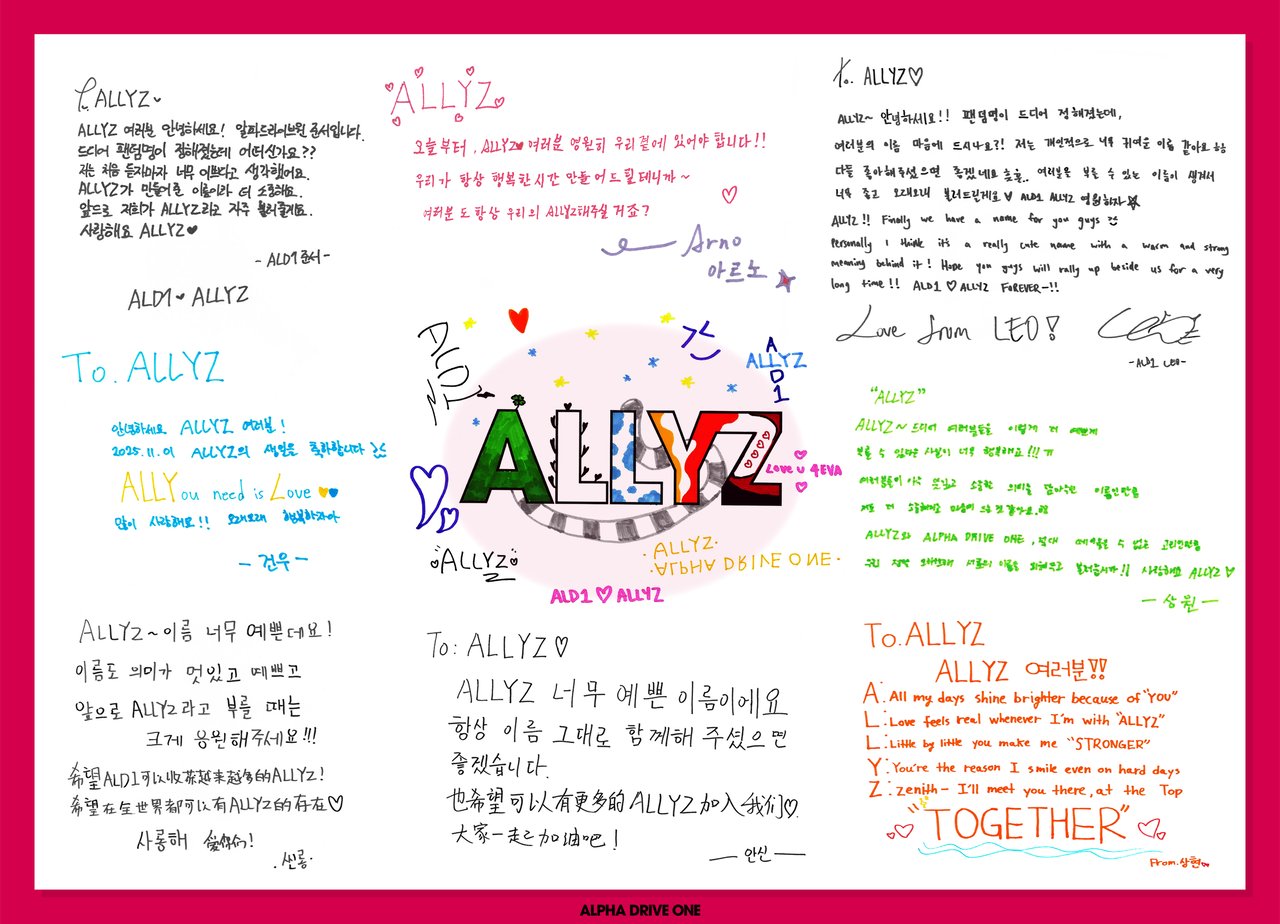 To. ALLYZ
ALLYZ 여러분 안녕하세요! 알파드라이브원 준서입니다.
드디어 팬덤명이 정해졌는데 어떠신가요??
저는 처음 듣자마자 너무 이쁘다고 생각했어요.
ALLYZ가 만들어준 이름이라 더 소중해요.
앞으로 저희가 ALLYZ라고 자주 불러줄게요.
사랑해요 ALLYZ♥
- ALD1 준서 -
ALD1 ♥ ALLYZ
ALLYZ
오늘부터, ALLYZ♥ 여러분 영원히 우리 곁에 있어야 합니다!!
우리가 항상 행복한시간 만들어드릴테니까~
여러분도 항상 우리의 ALLYZ해주실 거죠?
Arno
아르노
To. ALLYZ♡
ALLYZ~ 안녕하세요!! 팬덤명이 드디어 정해졌는데,
여러분의 이름 마음에 드시나요?! 저는 개인적으로 너무 귀여운 이름 같아요 ㅎㅎ
다들 좋아해주셨으면 좋겠네요 여러분을 부를 수 있는 이름이 생겨서
너무 좋고 오래오래 불러드릴게요 ♥ ALD1 ALLYZ 영원하자
ALLYZ!! Finally we have a name for you guys
Personally I think it's a really cute name with a warm and strong
meaning behind it! Hope you guys will rally up beside us for a very
long time!! ALD1 ♡ ALLYZ FOREVER~!!
Love from LEO!
-ALD1 LEO-
To. ALLYZ
안녕하세요 ALLYZ 여러분!
2025.11.01 ALLYZ의 생일을 축하합니다
ALLYou need is Love
많이 사랑해요!! 오래오래 행복하자아
- 건우 -
ALD1
건
ALLYZ
AD1
ALLYZ
Love u 4EVA
ALLYZ
ALLYZ
ALPHA DRIVE ONE
ALD1 ♡ ALLYZ
"ALLYZ"
ALLYZ~ 드디어 여러분들을 이렇게 더 예쁘게
부를 수 있다는 사실이 너무 행복해요!!! ㅠ
여러분들이 아주 뜻깊고 소중한 의미를 담아주신 이름인만큼
저도 더 소중하게
ALLYZ와 ALPHA DRIVE ONE, 절대 떼어놓을 수 없는 고리인만큼
우리 정말 오래오래 서로의 이름을 불러줍시다!! 사랑해요 ALLYZ♡
- 상원 -
ALLYZ~ 이름 너무 예쁜데요!
이름도 의미가 멋있고 예쁘고
앞으로 ALLYZ라고 부를 때는
크게 응원해주세요!!!
希望ALD1可以收获越来越多的ALLYZ!
希望在全世界都可以有ALLYZ的存在♡
사롱해 爱你们!
씬롱.
To: ALLYZ♡
ALLYZ 너무 예쁜 이름이에요
항상 이름 그대로 함께해 주셨으면
좋겠습니다.
也希望可以有更多的ALLYZ加入我们♡.
大家一起加油吧!
— 안신 —
To. ALLYZ
ALLYZ 여러분!!
A: All my days shine brighter because of "YOU"
L: Love feels real whenever I'm with "ALLYZ"
L: Little by little you make me "STRONGER"
Y: You're the reason I smile even on hard days
Z: zenith- I'll meet you there, at the Top
"TOGETHER"
From. 상현
ALPHA DRIVE ONE